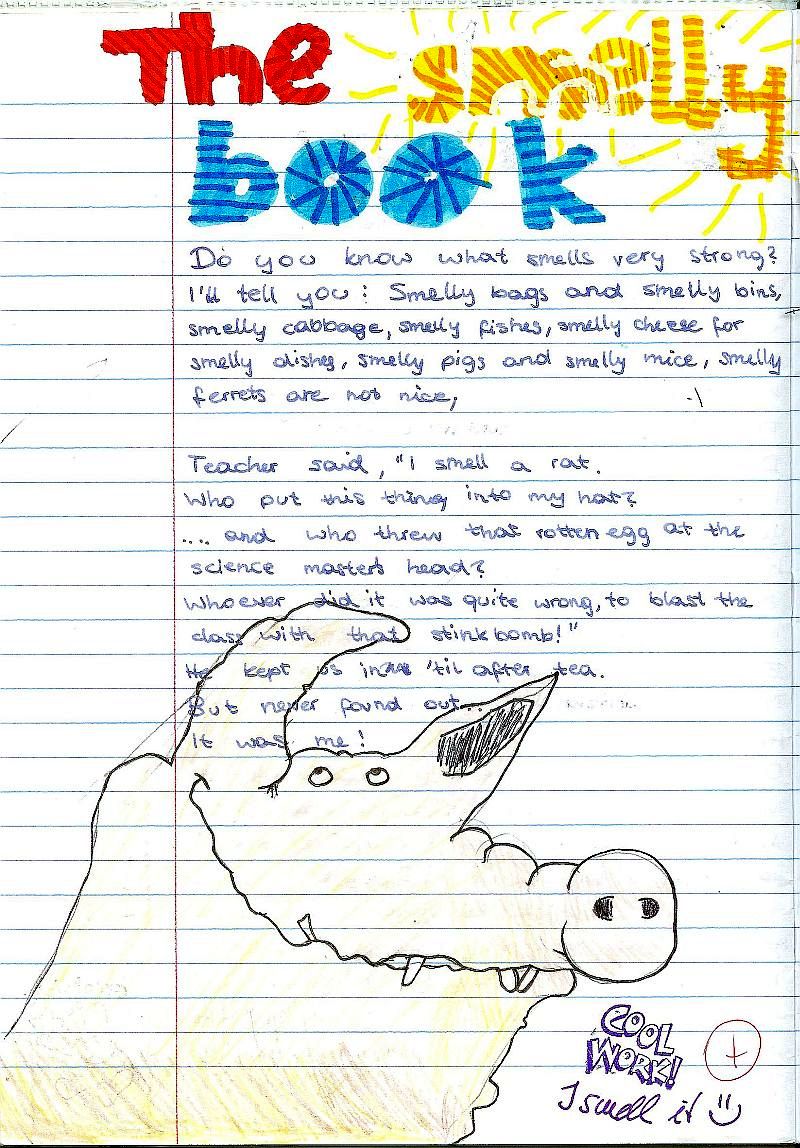 The smelly
book
Do you know what smells very strong?
I'll tell you: Smelly bags and smelly bins,
smelly cabbage, smelly fishes, smelly cheese for
smelly dishes, smelly pigs and smelly mice, smelly
ferrets are not nice,
Teacher said, "I smell a rat.
Who put this thing into my hat?
.... and who threw that rotten egg at the
science master's head?
Whoever did it was quite wrong, to blast the
class with that stinkbomb!"
He kept us in 'til after tea.
But never found out...
It was me!
COOL
WORK!
I smell it